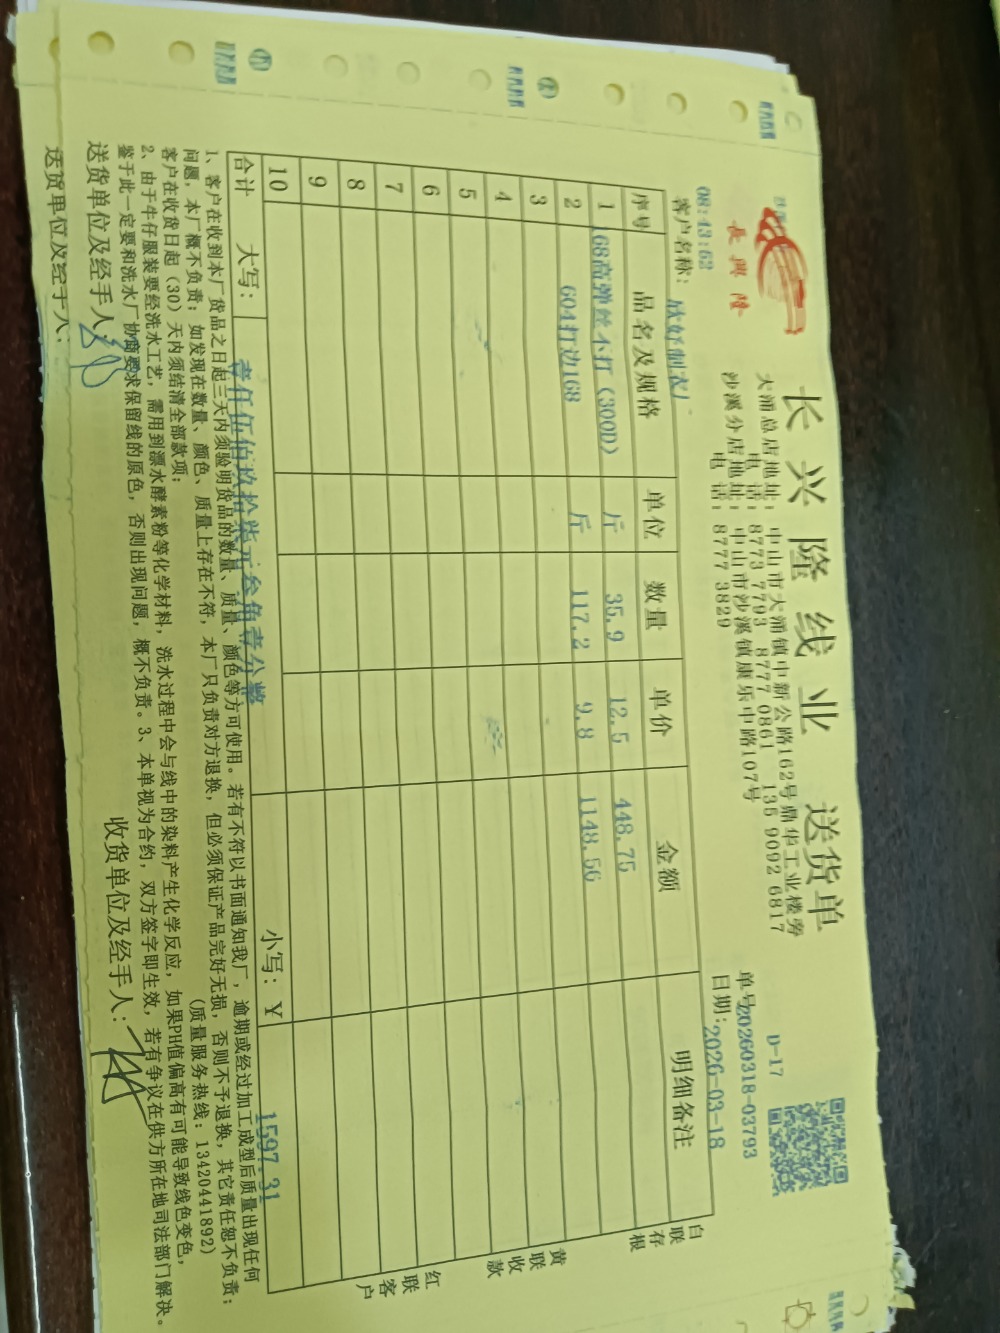 長興隆
长兴隆线业 送货单
大涌总店地址: 中山市大涌镇中新公路162号鼎华工业楼旁
电话: 8773 7793 8777 0861 135 9092 6817
沙溪分店地址: 中山市沙溪镇康乐中路107号
电话: 8777 3829
D-17
单号20260318-03793
日期: 2026-03-18
08:43:52
客户名称: 欣好制衣厂
序号 品名及规格 单位 数量 单价 金额 明细备注
1 168高弹丝不打(300D) 斤 35.9 12.5 448.75
2 604打边168 斤 117.2 9.8 1148.56
3
4
5
6
7
8
9
10
合计 大写: 壹仟伍佰玖拾柒元叁角壹分整 小写: ¥ 1597.31
白联存根
黄联收款
红联客户
1、客户在收到本厂货品之日起三天内须验明货品的数量、质量、颜色等方可使用。若有不符以书面通知我厂,逾期或经过加工成型后质量出现任何
问题,本厂概不负责;如发现在数量、颜色、质量上存在不符,本厂只负责对方退换,但必须保证产品完好无损,否则不予退换,其它责任恕不负责;
客户在收货日起(30)天内须结清全部款项; (质量服务热线: 13420441892)
2、由于牛仔服装要经洗水工艺,需用到漂水酵素粉等化学材料,洗水过程中会与线中的染料产生化学反应,如果PH值偏高有可能导致线色变色,
鉴于此一定要和洗水厂协商要求保留线的原色,否则出现问题,概不负责。3、本单视为合约,双方签字即生效,若有争议在供方所在地司法部门解决。
送货单位及经手人: 收货单位及经手人:
送货单位及经手人: